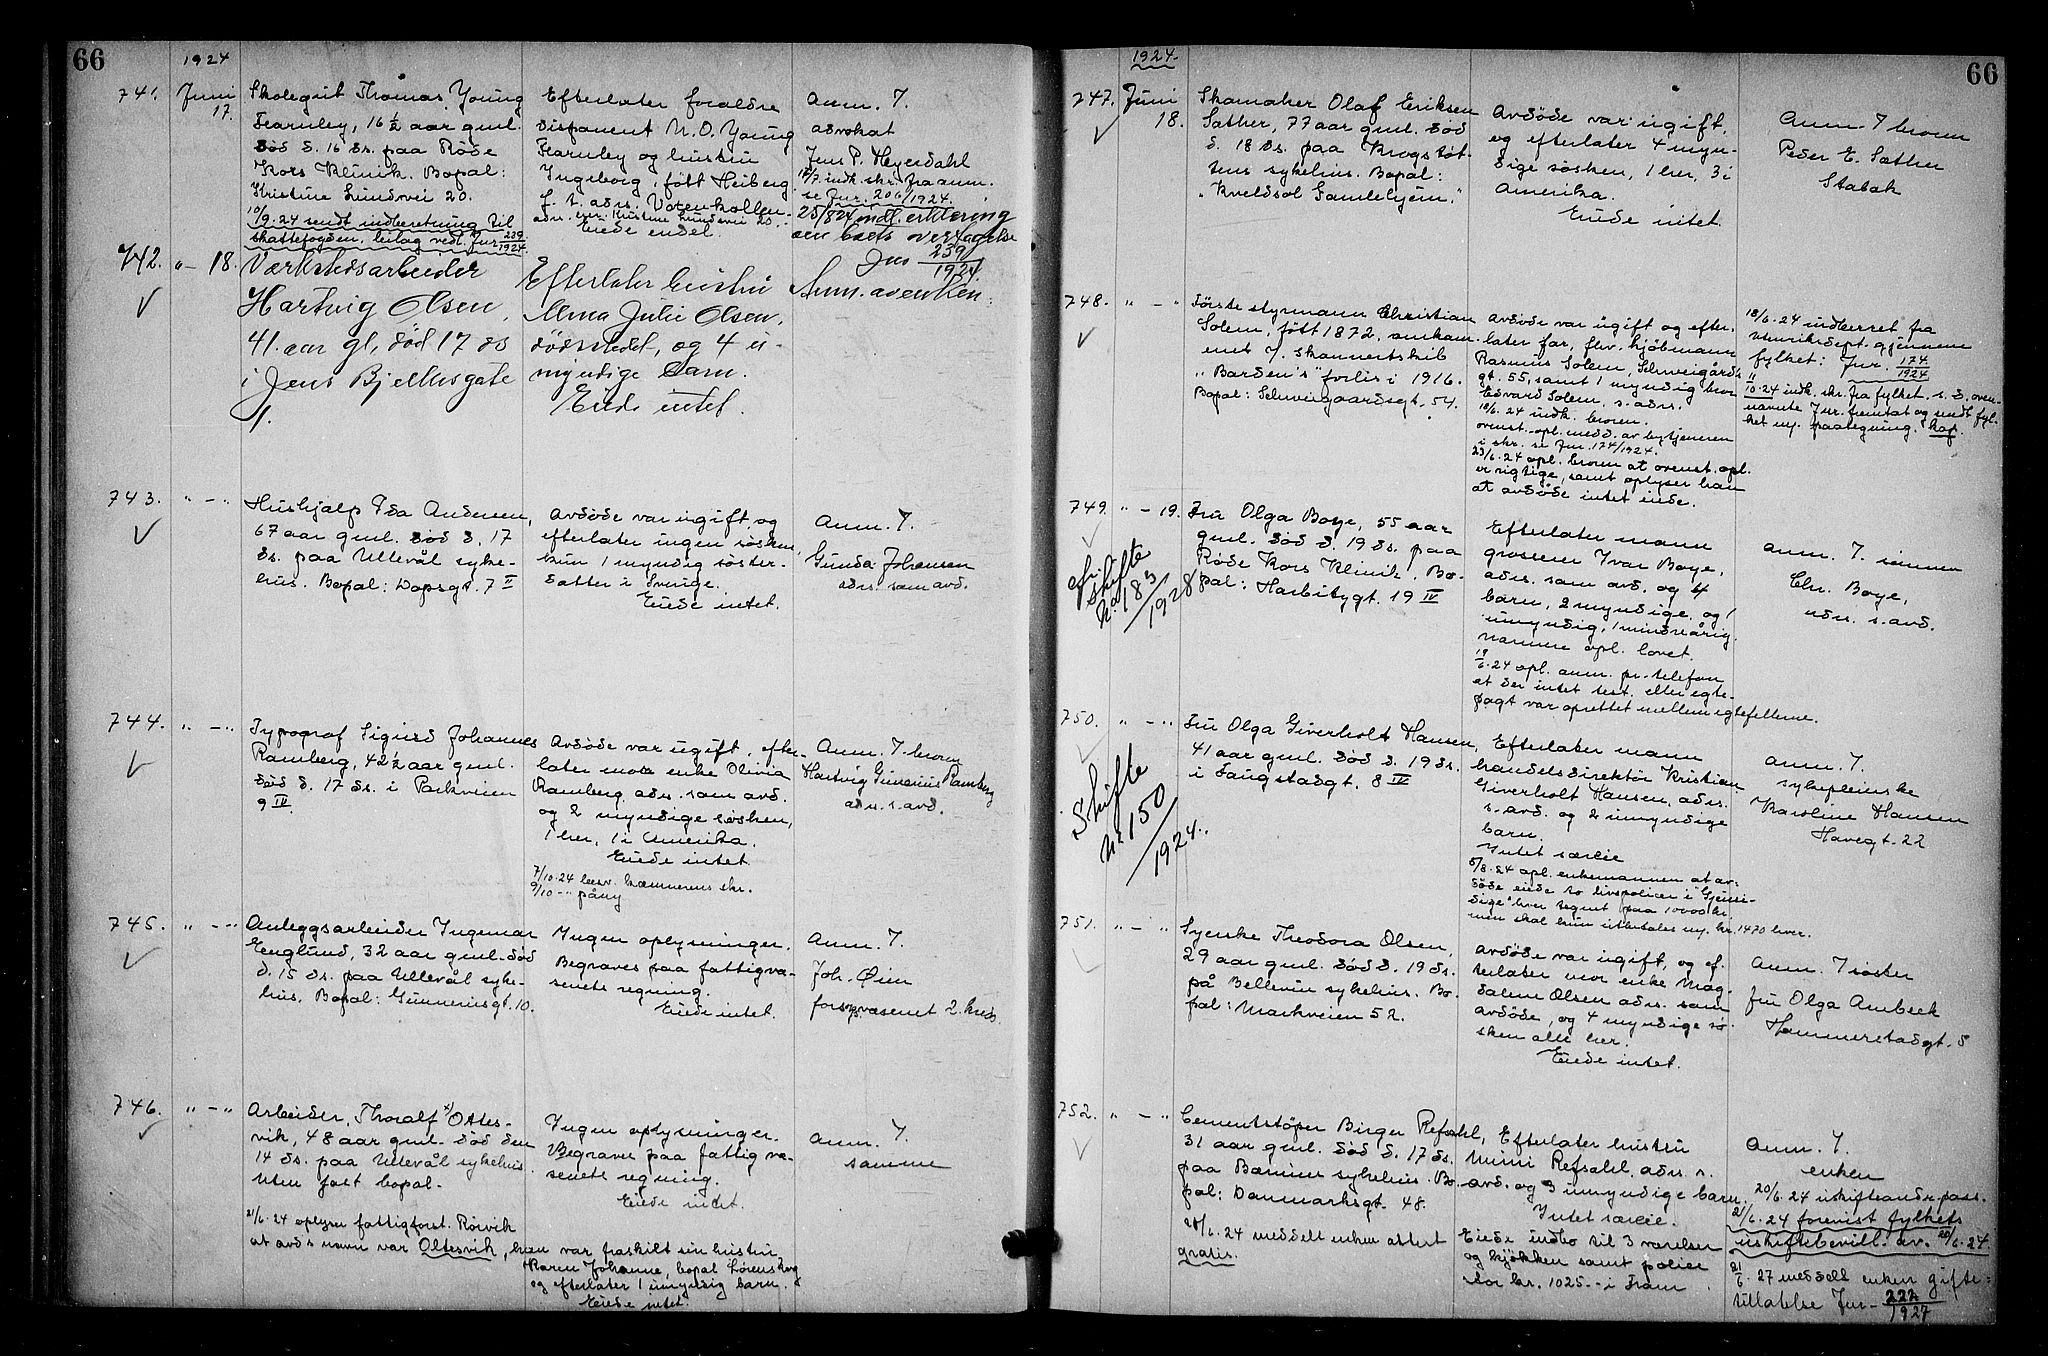 66
1924
741. Juni 17.
Skolegut Thomas Young
Fearnley, 16 ½ aar gml.
død d. 16 ds. paa Røde
Kors Klinik. Bopæl:
Kristine Lundsvei 20.
/9.24 sendt indberetning til
skattefogden, bilag vedl. Jur 239/1924.
Efterlater forældre
disponent N. O. Young
Fearnley og hustru
Ingeborg, født Heiberg
f. t. adrs. Voxenkollen
adrs. Kristine Lundsvei 20.
Eiede endel.
Anm. 7.
advokat
Jens P. Heyerdahl
indk. skr. fra anm.
se Jur. 206/1924.
25/8 24 indl. erklæring
om boets overtagelse
Jur 239/1924.
742. " - 18.
Værkstedsarbeider
Hartvig Olsen,
41 aar gl, død 17 ds
i Jens Bjelkesgate
1.
Efterlater hustru
Alma Julie Olsen,
dødsstedet, og 4 u-
myndige barn.
Eiede intet.
Anm. av enken.
743. " - "
Hushjælp Ida Andersen,
67 aar gml. død d. 17
ds. paa Ullevål syke-
hus. Bopæl: Dopsgt. 7 II
Avdøde var ugift og
efterlater ingen søsken,
kun 1 myndig søster-
datter i Sverige.
Eiede intet.
Anm. 7.
Gunda Johansen
adrs. som avd.
744. " - "
Typograf Sigurd Johannes
Ramberg, 42½ aar gml.
død d. 17 ds. i Parkveien
9 IV.
Avdøde var ugift, efter-
later mor enke Olivia
Ramberg adrs. som avd.
og 2 myndige søsken,
1 her, 1 i Amerika.
Eiede intet.
7/10.24 besv. kæmnerens skr.
9/10 - " påny
Anm. 7. broren
Hartvig Gunerius Ramberg
adrs. s. avd.
745. " - "
Anleggsarbeider Ingemar
Englund, 32 aar gml. død
d. 15 ds. paa Ullevål syke-
hus. Bopæl: Gunneriusgt. 10.
Ingen oplysninger.
Begraves paa fattigvæ-
senets regning.
Eiede intet.
Anm. 7.
Joh. Øien
forsgvæsenet 2. kreds.
746. " - "
Arbeider, Thoralf x) Ottes-
vik, 48 aar gml. død den
14 ds. paa Ullevål sykehus.
Uten fast bopæl.
Ingen oplysninger.
Begraves paa fattigvæ-
senets regning.
Eiede intet.
Anm. 7.
samme
21/6.24 oplyser fattigforst. Rørvik
at avd's navn var Oltesvik, han var fraskilt sin hustru
Karen Johanne, bopæl Lørenskog
og efterlater 1 umyndig barn.
Eiede intet.
1924.
66
747. Juni 18.
Skomaker Olaf Eriksen
Sæther, 77 aar gml. død
d. 18 ds. paa Krogstøt-
tens sykehus. Bopæl:
"Kveldsol Gamlehjem."
Avdøde var ugift,
og efterlater 4 myn-
dige søsken, 1 her, 3 i
Amerika.
Eiede intet.
Anm. 7 broren
Peder E. Sæther
Stabæk
748. " - "
Første styrmann Christian
Solem, født 1872, omkom-
met v. skonnertskib
"Barden's" forlis i 1916.
Bopæl: Schweigaardsgt. 54.
Avdøde var ugift og efter-
later far, fhv. kjøbmann
Rasmus Solem, Schweigårds
gt. 55, samt 1 myndig bror
Edvard Solem, s. adrs.
18/6. 24 indk. broren.
ovenst. opl. medd. av bytjeneren
i skr. se Jur. 174/1924.
23/6.24 opl. broren at ovenst. opl.
er rigtige, samt oplyser han
at avdøde intet eiede.
18/6.24 indberet. fra
utenriksdept. gjennem
fylket: Jur. 174/1924
11/10.24 indk. skr. fra fylket. s. d. oven-
nævnte Jur. fremtat og sendt fyl-
ket m. paategning. kop.
749. " - 19.
Fru Olga Boye, 55 aar
gml. død d. 19 ds. paa
Røde Kors Klinik. Bo-
pæl: Harbitzgt. 19 IV
Skifte
No. 183/1928
Efterlater mann
grosserer Ivar Boye,
adrs. som avd. og 4
barn, 2 myndige, og 1
umyndig, 1 mindreårig.
Navnene opl. lovet.
19/6.24 opl. anm. pr. telefon
at der intet test. eller egte-
pagt var oprettet mellem egtefellerne.
Anm. 7. sønnen
Chr. Boye,
adrs. s. avd.
750. " - "
Fru Olga Giverholt Hansen,
41 aar gml. død d. 19 ds.
i Faugstadgt. 8 IV
Skifte
No 150/1924.
Efterlater mann
handelsdirektør Kristian
Giverholt Hansen, adrs.
s. avd. og 2 umyndige
barn.
Intet særeie
5/8.24 opl. enkemannen at av-
døde eiede to livspolicer i "Gjensi-
dige" hver tegnet paa 10000 kr.
men skal kun utbetales m. kr. 1470 hver.
Anm. 7.
sykepleierske
Karoline Hansen
Havegt. 22
751. " - "
Syerske Theodora Olsen,
29 aar gml. død d. 19 ds.
på Bellevue sykehus. Bo-
pæl: Markveien 52.
Avdøde var ugift, og ef-
terlater mor enke Mag-
dalene Olsen adrs. som
avdøde, og 4 myndige sø-
sken alle her.
Eiede intet.
Anm. 7 søster
fru Olga Ambeck
Hammerstadgt. 5
752. " - "
Cementstøper Birger Refsahl,
31 aar gml. død d. 17 ds.
paa Bærums sykehus. Bo-
pæl: Danmarksgt. 48.
20/6.24 meddelt enken attest
gratis.
Efterlater hustru
Mimi Refsahl adrs. s.
avd. og 3 umyndige barn.
Intet særeie.
Eiede indbo til 3 værelser
og kjøkken samt police
stor kr. 1025.- i Fram
Anm. 7.
enken
20/6.24 uskifteandr. pass.
21/6.24 forevist fylkets
uskiftebevill. av. 20/6.24.
21/6.27 meddelt enken gifte-
tillatelse Jur- 222/1927